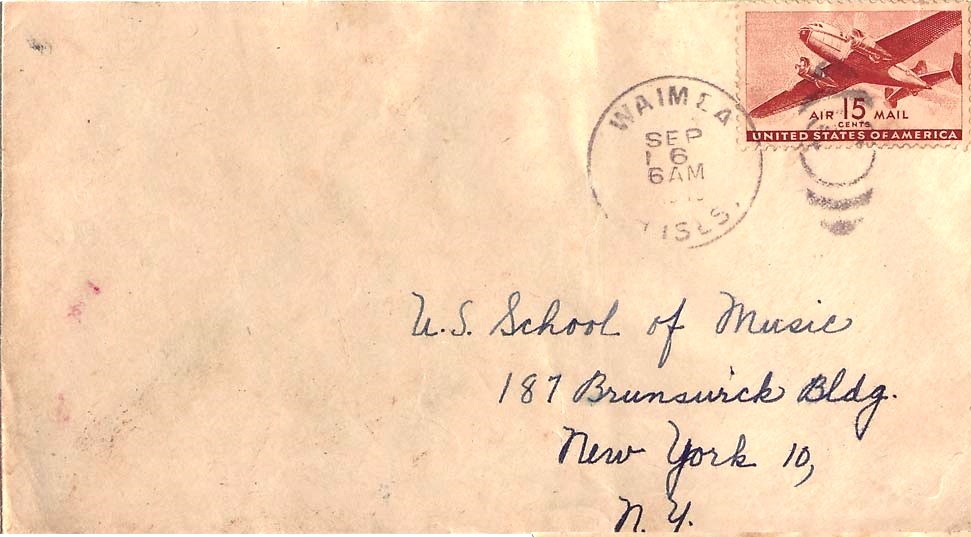 AIR 15 MAIL
CENTS
UNITED STATES OF AMERICA
WAIMEA
SEP
16
6AM
ISLS.
U.S. School of Music
187 Brunswick Bldg.
New York 10,
N.Y.